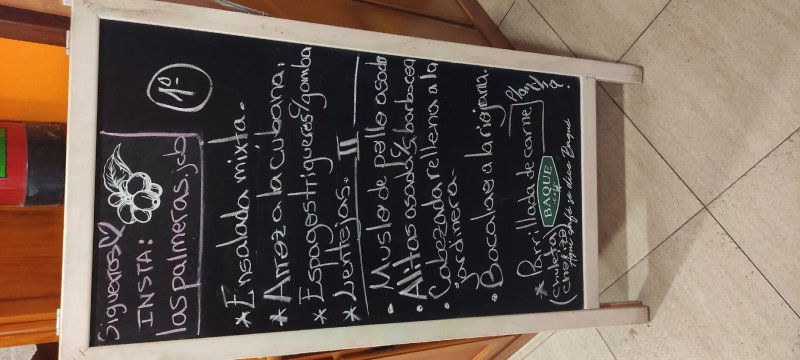 Siguenos
INSTA:
las palmeras.jcb
1º
* Ensalada mixta.
* Arroz a la cúbana.
* Espagos trigueros % gamba
* Lentejas. II
• Muslo de pollo asado
• Alitas asada % barbacoa
• Cabezada rellena a la
jardinera.
• Bacalao a la riojana.
* Parrillada de carne
(chuleta
BAQUE
café
Aquí café se dice Baqué